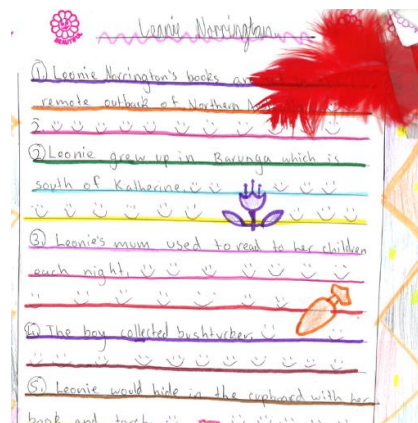 BEAUTIFUL
Leonie Norrington
1) Leonie Norrington's books are
remote outback of Northern
2) Leonie grew up in Barunga which is
south of Katherine.
3) Leonie's mum used to read to her children
each night.
4) The boy collected bushtucker.
5) Leonie would hide in the cupboard with her
book and torch.